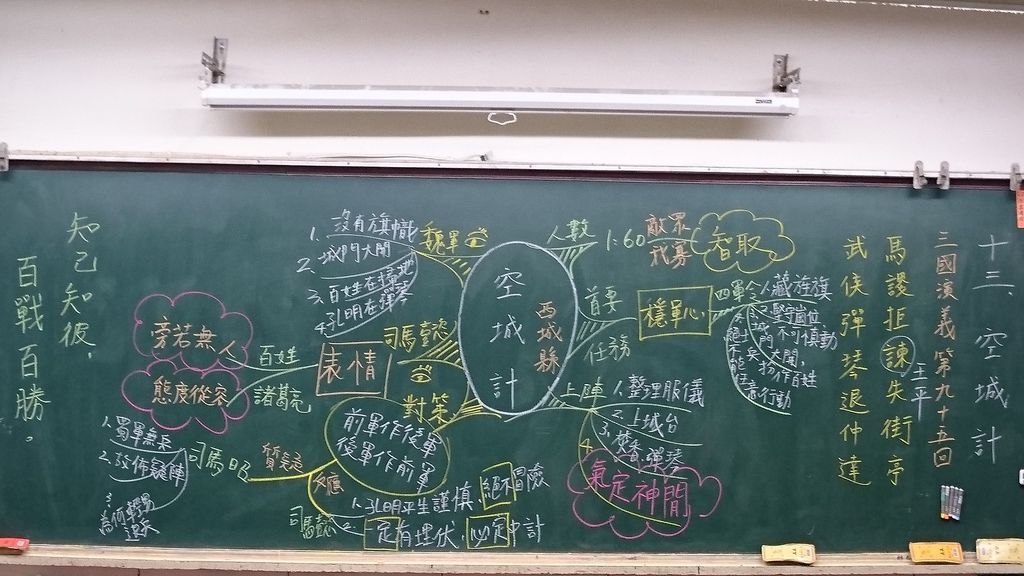 十三、空城計
三國演義第九十五回
馬謖拒諫失街亭
上平
武侯彈琴退仲達
空城計
西城縣
人數
1:60
敵眾
我寡
智取
首要
任務
穩軍心
四軍令
藏旌旗
堅守崗位
不可慣動
城門大開,
扮作百姓
行動
上陣
1.整理服儀
2.上城台
3.焚香彈琴
氣定神閒
魏軍
1.沒有旗幟
2.城門大開
3.百姓在掃地
4.孔明在彈琴
司馬懿
表情
百姓
旁若無人
諸葛亮
態度從容
對策
前軍作後軍
後軍作前軍
司馬昭
質疑
1.蜀軍無兵
2.故佈疑陣
3.為何
退兵
回應
司馬懿
1.孔明平生謹慎,絕不冒險
2.一定有埋伏,必定中計
知己知彼,
百戰百勝。